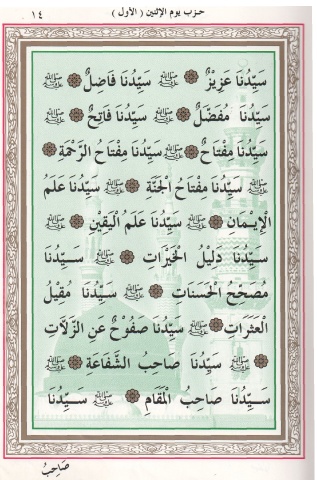 حزب يوم الإثنين ( الأول ) ١٤
سَيِّدُنَا عَزِيزٌ ﷺ سَيِّدُنَا فَاضِلٌ ﷺ
سَيِّدُنَا مُفَضَّلٌ ﷺ سَيِّدُنَا فَاتِحٌ ﷺ
سَيِّدُنَا مِفْتَاحٌ ﷺ سَيِّدُنَا مِفْتَاحُ الرَّحْمَةِ
ﷺ سَيِّدُنَا مِفْتَاحُ الْجَنَّةِ ﷺ سَيِّدُنَا عَلَمُ
الْإِيمَانِ ﷺ سَيِّدُنَا عَلَمُ الْيَقِينِ ﷺ
سَيِّدُنَا دَلِيلُ الْخَيْرَاتِ ﷺ سَيِّدُنَا
مُصَحِّحُ الْحَسَنَاتِ ﷺ سَيِّدُنَا مُقِيلُ
الْعَثَرَاتِ ﷺ سَيِّدُنَا صَفُوحٌ عَنِ الزَّلَّاتِ
ﷺ سَيِّدُنَا صَاحِبُ الشَّفَاعَةِ ﷺ
سَيِّدُنَا صَاحِبُ الْمَقَامِ ﷺ سَيِّدُنَا
صَاحِبُ